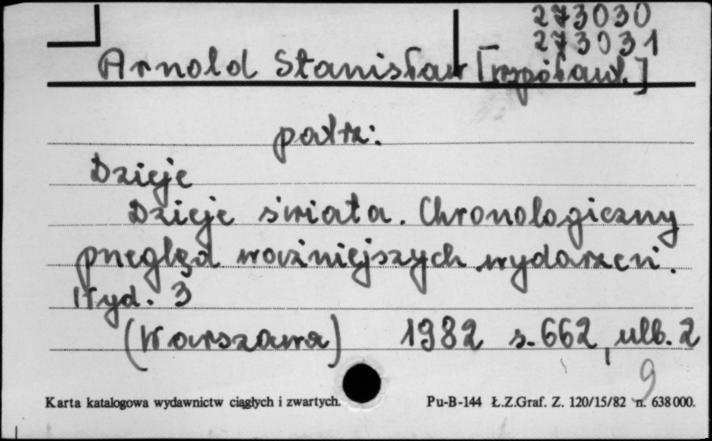 273030
273031
Arnold Stanisław [współaut.]
patrz:
Dzieje
Dzieje świata. Chronologiczny
przegląd ważniejszych wydarzeń.
Wyd. 3
(Warszawa) 1982 s. 662, ulb. 2
9
Karta katalogowa wydawnictw ciągłych i zwartych. Pu-B-144 Ł.Z.Graf. Z. 120/15/82 n. 638000.